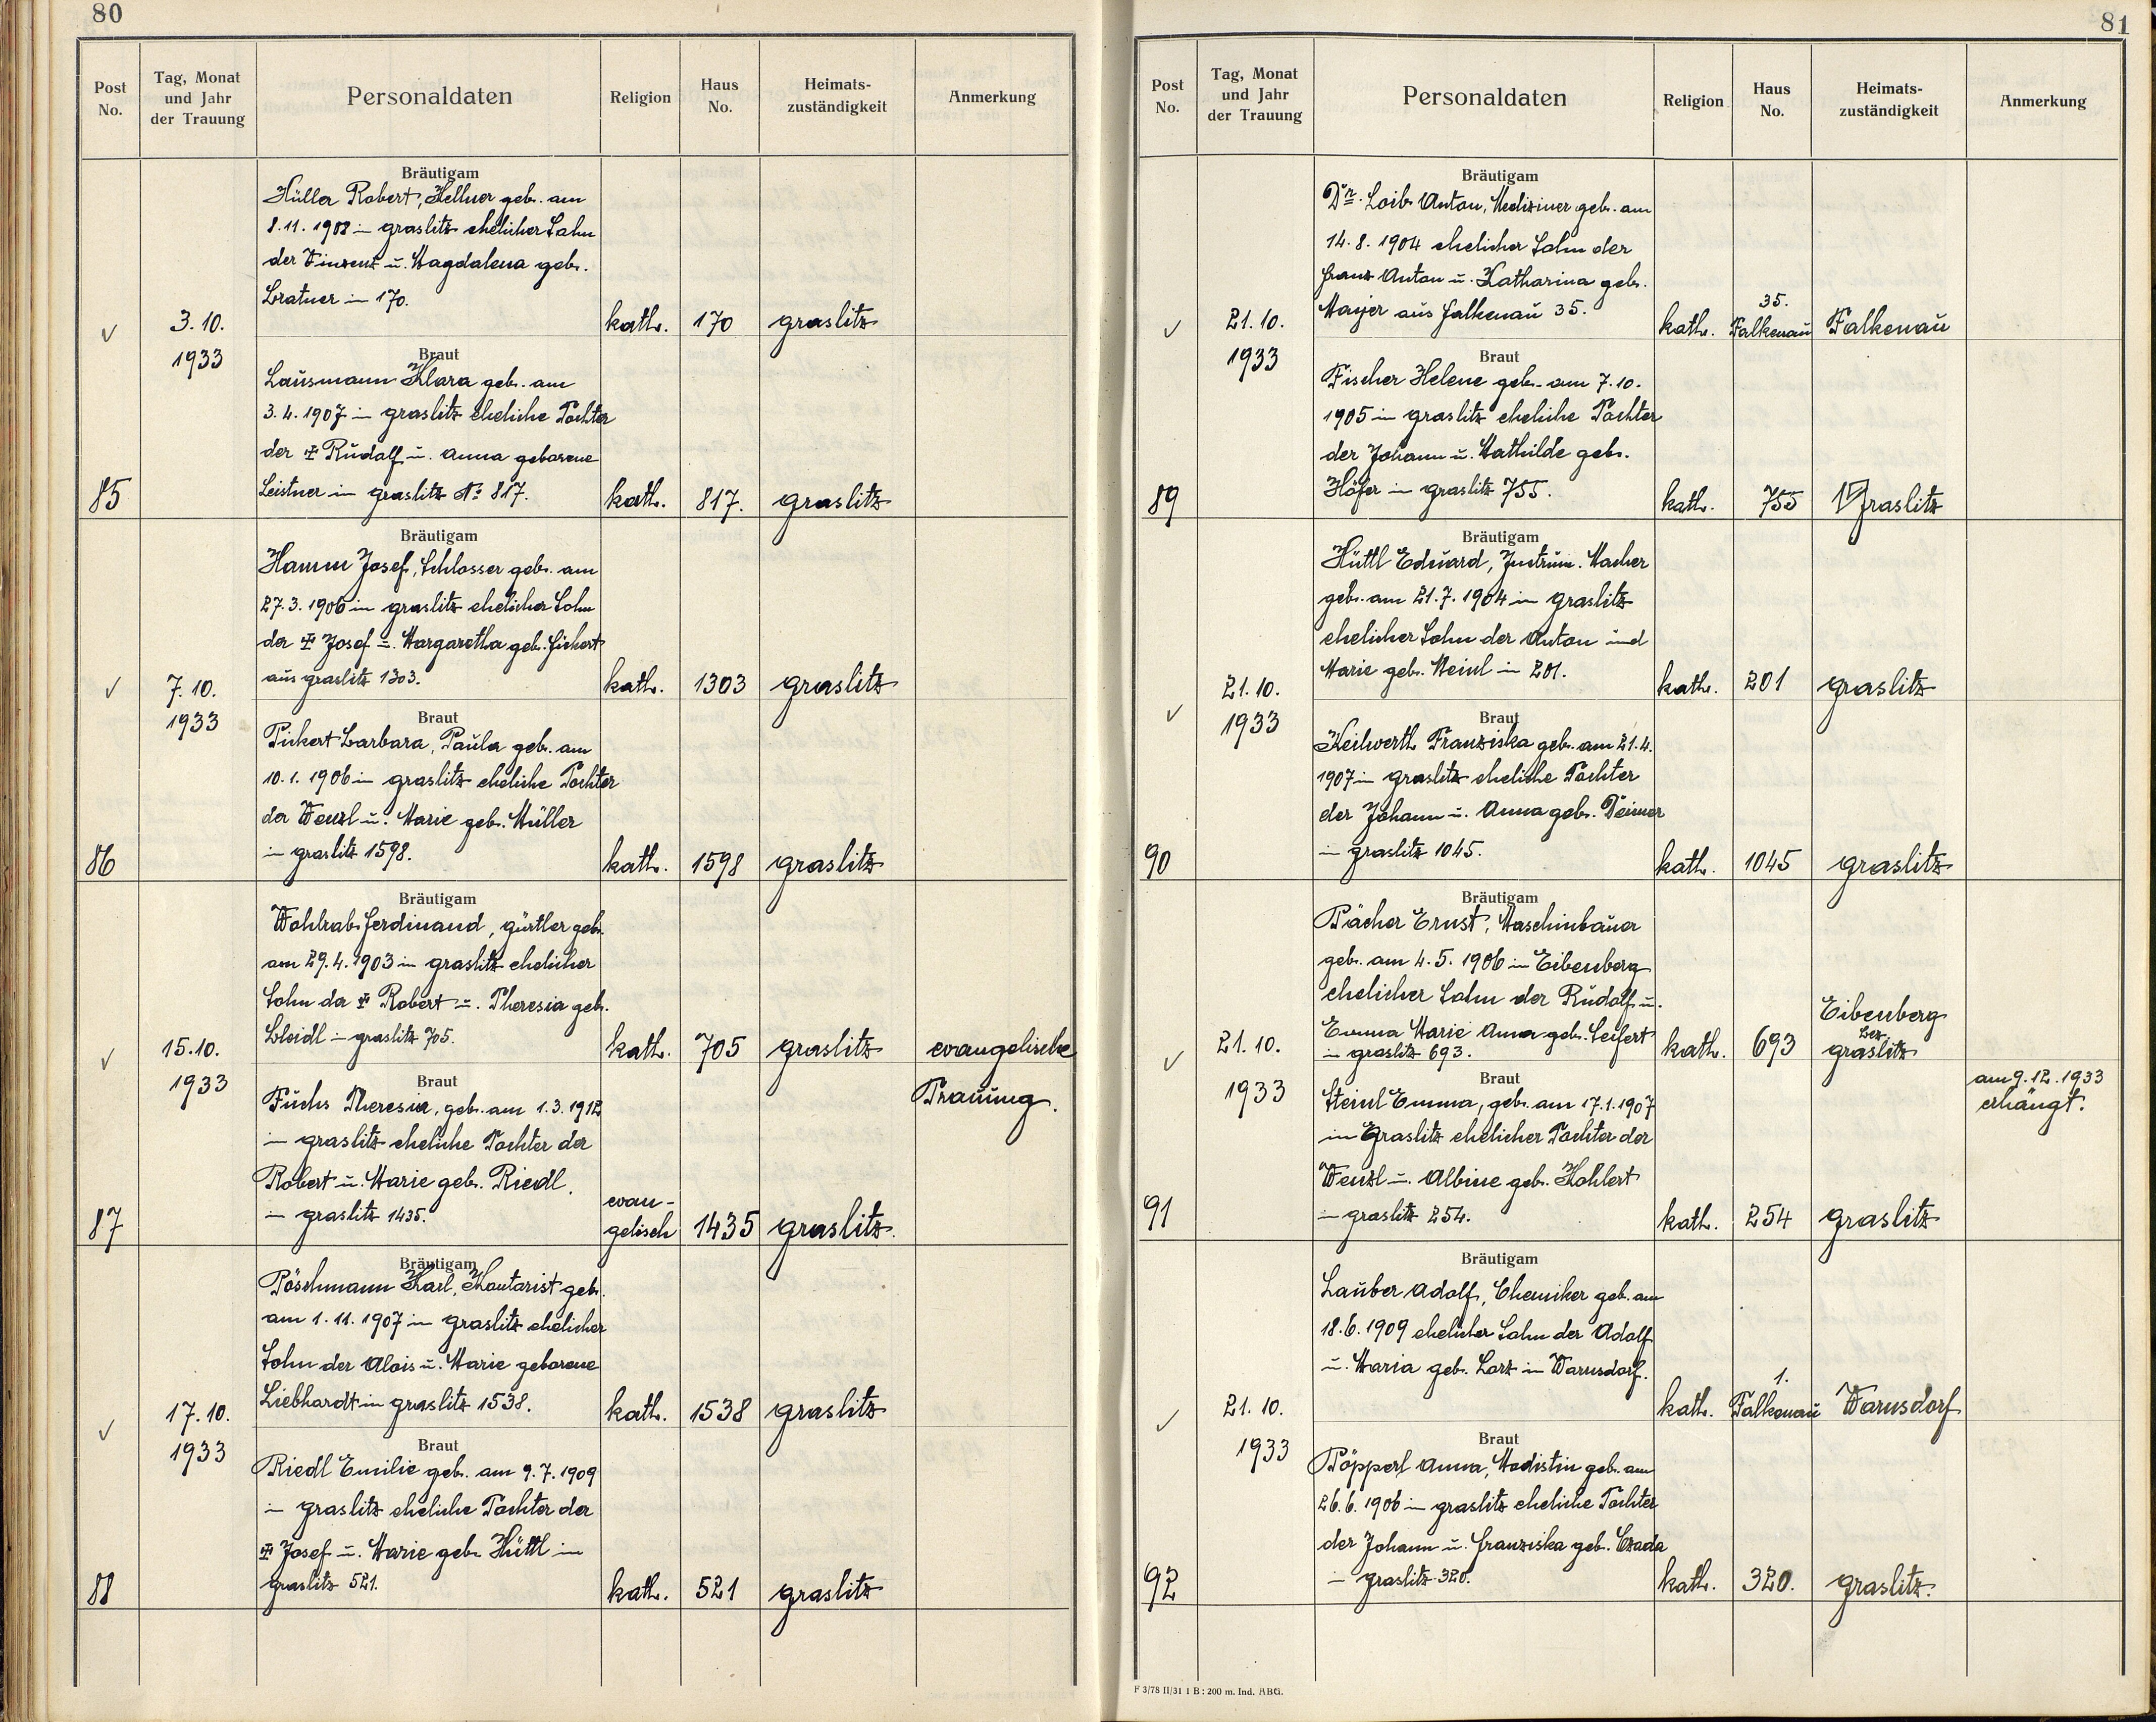 80
Post No.
Tag, Monat und Jahr der Trauung
Personaldaten
Religion
Haus No.
Heimats-zuständigkeit
Anmerkung
Bräutigam
Hüller Robert, Kellner geb. am
8.11.1908 in Graslitz ehelicher Sohn
der Vinzenz u. Magdalena geb.
Bratner in 170.
kath. 170 Graslitz
3.10.
1933
Braut
Lausmann Klara geb. am
3.4.1907 in Graslitz eheliche Tochter
der ✝ Rudolf u. Anna geborene
Leistner in Graslitz No 817.
85
kath. 817. Graslitz
Bräutigam
Hamm Josef, Schlosser geb. am
27.3.1906 in Graslitz ehelicher Sohn
der ✝ Josef u. Margaretha geb. Fickert
aus Graslitz 1303.
kath. 1303 Graslitz
7.10.
1933
Braut
Pickert Barbara, Paula geb. am
10.1.1906 in Graslitz eheliche Tochter
der Wenzl u. Marie geb. Müller
in Graslitz 1598.
86
kath. 1598 Graslitz
Bräutigam
Wohlrab Ferdinand, Gürtler geb.
am 29.4.1903 in Graslitz ehelicher
Sohn der ✝ Robert u. Theresia geb.
Bleidl in Graslitz 705.
kath. 705 Graslitz evangelische
Trauung.
15.10.
1933
Braut
Fuchs Theresia, geb. am 1.3.1912
in Graslitz eheliche Tochter der
Robert u. Marie geb. Riedl.
in Graslitz 1435.
87
evan-
gelisch 1435 Graslitz.
Bräutigam
Pöschmann Karl, Kontorist geb.
am 1.11.1907 in Graslitz ehelicher
Sohn der Alois u. Marie geborene
Liebhardt in Graslitz 1538.
kath. 1538 Graslitz
17.10.
1933
Braut
Riedl Emilie geb. am 9.7.1909
in Graslitz eheliche Tochter der
✝ Josef u. Marie geb. Hüttl in
Graslitz 521.
88
kath. 521 Graslitz
81
Post No.
Tag, Monat und Jahr der Trauung
Personaldaten
Religion
Haus No.
Heimats-zuständigkeit
Anmerkung
Bräutigam
Dr. Loib Anton, Mediziner geb. am
14.8.1904 ehelicher Sohn der
Franz Anton u. Katharina geb.
Mayer aus Falkenau 35.
kath. 35. Falkenau Falkenau
21.10.
1933
Braut
Fischer Helene geb. am 7.10.
1905 in Graslitz eheliche Tochter
der Johann u. Mathilde geb.
Höfer in Graslitz 755.
89
kath. 755 Graslitz
Bräutigam
Hüttl Eduard, Instrum. Macher
geb. am 21.7.1904 in Graslitz
ehelicher Sohn der Anton und
Marie geb. Meinl in 201.
kath. 201 Graslitz
21.10.
1933
Braut
Keilwerth Franziska geb. am 21.4.
1907 in Graslitz eheliche Tochter
der Johann u. Anna geb. Deimer
in Graslitz 1045.
90
kath. 1045 Graslitz
Bräutigam
Pächer Ernst, Maschinbauer
geb. am 4.5.1906 in Eibenberg
ehelicher Sohn der Rudolf u.
Emma Marie Anna geb. Seifert
in Graslitz 693.
kath. 693
Eibenberg
Bez.
Graslitz
21.10.
1933
am 9.12.1933
erhängt.
Braut
Steinl Emma, geb. am 17.1.1907
in Graslitz ehelicher Tochter der
Wenzl u. Albine geb. Kohlert
in Graslitz 254.
91
kath. 254 Graslitz
Bräutigam
Lauber Adolf, Chemiker geb. am
18.6.1909 ehelicher Sohn der Adolf
u. Maria geb. Lorz in Warnsdorf.
kath. 1. Falkenau Warnsdorf
21.10.
1933
Braut
Pöpperl Anna, Modistin geb. am
26.6.1906 in Graslitz eheliche Tochter
der Johann u. Franziska geb. Czada
in Graslitz 320.
92
kath. 320. Graslitz.
F 3/78 II/31 1 B : 200 m. Ind. ABG.